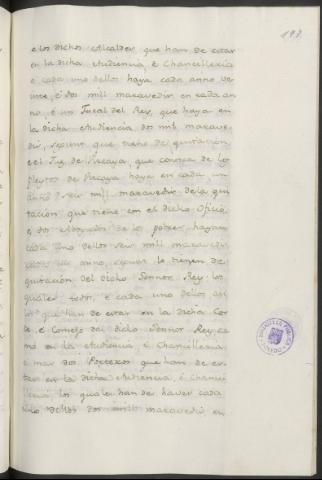 197.
e los dichos Alcaldes, que han de estar
en la dicha Audiencia, e Chancilleria
e cada uno dellos haya cada anno ve
inte, é dos mill maravedis en cada an
no, é un Fiscal del Rey, que haya en
la dicha Audiencia dos mil marave-
dis, segunt que tiene de quitacion,
e el Juez de Vizcaya, que conozca de los
Pleytos de Vizcaya haya en cada un
anno seis mill maravedis de la qui
tacion que tiene con el dicho Oficio,
e dos Abogados de los pobres hayan
cada uno dellos seis mill maravedis
cada un anno, segun lo tienen de
quitacion del dicho Sennor Rey los
quales todos, e cada uno dellos asi
los que han de estar en la dicha Cor
te, e Consejo del dicho Sennor Rey, co
mo en la Audiencia é Chancilleria
e mas dos Porteros que han de es-
tar en la dicha Audiencia, é Chanci
lleria, los quales han de haver cada
uno dellos dos mill maravedis en
BIBLIOTECA PUBLICA
TOLEDO